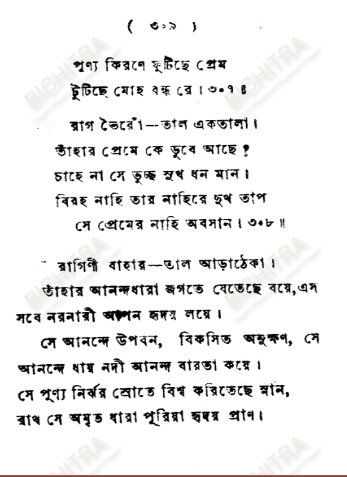 ( ৩০৯ )
পুণ্য কিরণে ফুটিছে প্রেম
টুটিছে মোহ বন্ধ রে । ৩০৭ ॥
রাগ ভৈরোঁ—তাল একতালা ।
তাঁহার প্রেমে কে ডুবে আছে ?
চাহে না সে তুচ্ছ সুখ ধন মান ।
বিরহ নাহি তার নাহিরে দুখ তাপ
সে প্রেমের নাহি অবসান । ৩০৮ ॥
রাগিণী বাহার—তাল আড়াঠেকা ।
তাঁহার আনন্দধারা জগতে যেতেছে বয়ে, এস
সবে নরনারী আপন হৃদয় লয়ে ।
সে আনন্দে উপবন, বিকসিত অনুক্ষণ, সে
আনন্দে ধায় নদী আনন্দ বারতা কয়ে ।
সে পুণ্য নির্ঝর স্রোতে বিশ্ব করিতেছে স্নান,
রাখ সে অমৃত ধারা পূরিয়া হৃদয় প্রাণ ।
BICHITRA